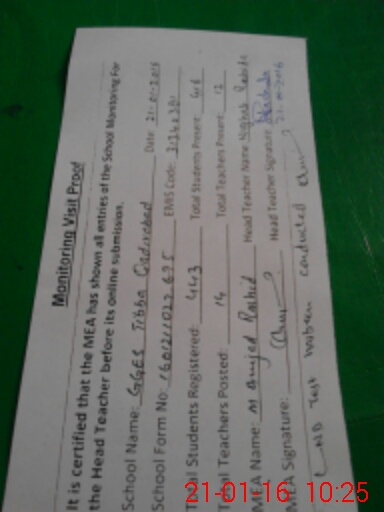 Monitoring Visit Proof
It is certified that the MEA has shown all entries of the School Monitoring For
the Head Teacher before its online submission.
School Name: GGES Tibba Qadirabad Date 21-01-2016
School Form No: 1601211027695 EMIS Code:
Total Students Registered: 443 Total Students Present: 416
Total Teachers Posted: 14 Total Teachers Present: 12
MEA Name: M Amjed Rashid Head Teacher Name
MEA Signature: Head Teacher Signature 21-01-2016
LND Test conducted
21-01-16 10:25